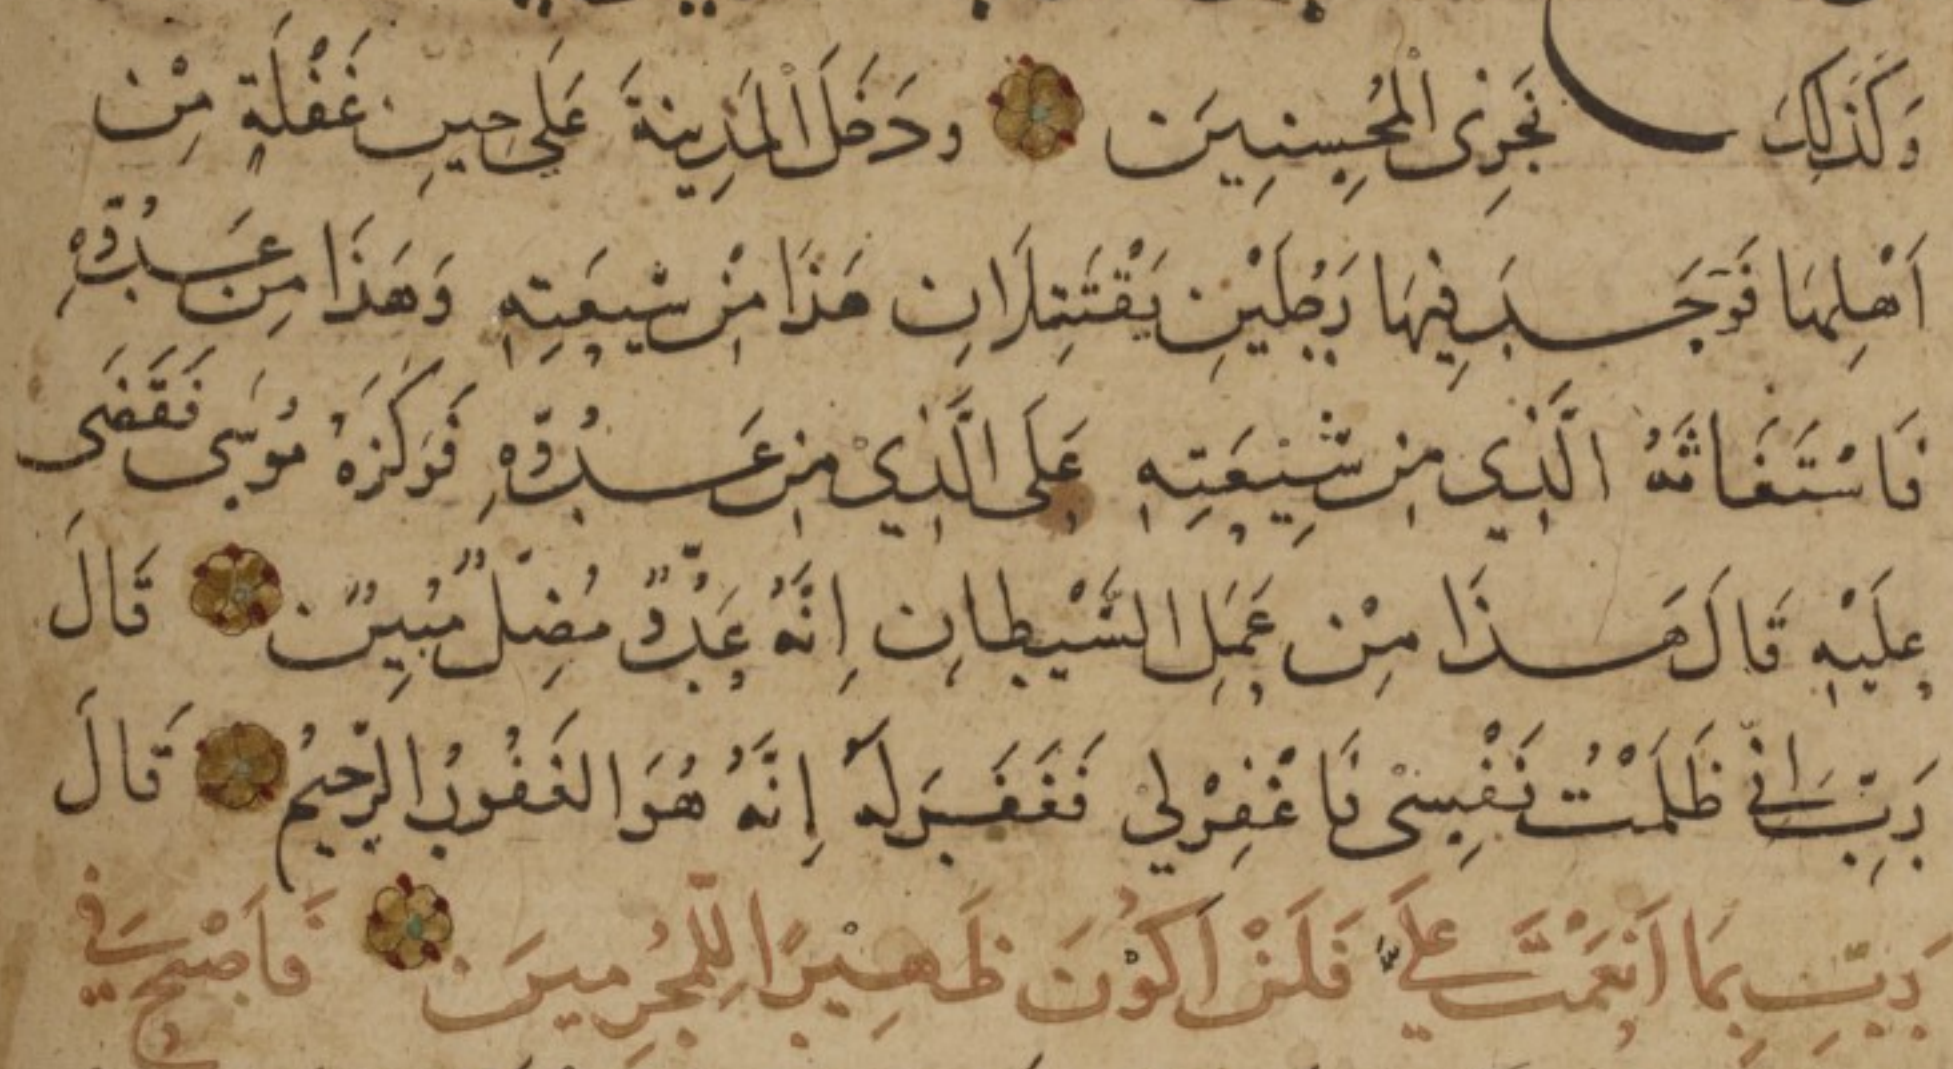 وَكَذَلِكَ نَجْزِى الْمُحْسِنِيَن ودَخَلَ الْمَدِينَةَ عَلَى حِينِ غَفْلَةٍ مِنْ
اَهْلِهَا فَوَجَدَ فِيهَا رَجُلَيْنِ يَقْتَتِلَانِ هَذَا مِنْ شِيعَتِهِ وَهَذَا مِن عَدُوِّهِ
فَاسْتَغَاثَهُ الَّذِي مِن شِيْعَتِهِ عَلَى الَّذِيْ مِن عَدُوِّهِ فَوَكَزَهُ مُوسَى فَقَضَى
عَلَيْهِ قَالَ هَذَا مِنْ عَمَلِ الشَّيْطَانِ اِنَّهُ عَدُوٌّ مُضِلٌّ مُبِينٌ قَالَ
رَبِّ اِنِّى ظَلَمْتُ نَفْسِىْ فَاغْفِرْ لِيْ فَغَفَرَ لَهُ اِنَّهُ هُوَ الغَفُورُ الرَّحِيمُ قَالَ
رَبِّ بِمَا اَنْعَمْتَ عَلَيَّ فَلَنْ اَكُوْنَ ظَهِيْرًا لِلْمُجْرِمِيَن فَاَصْبَحَ فِي